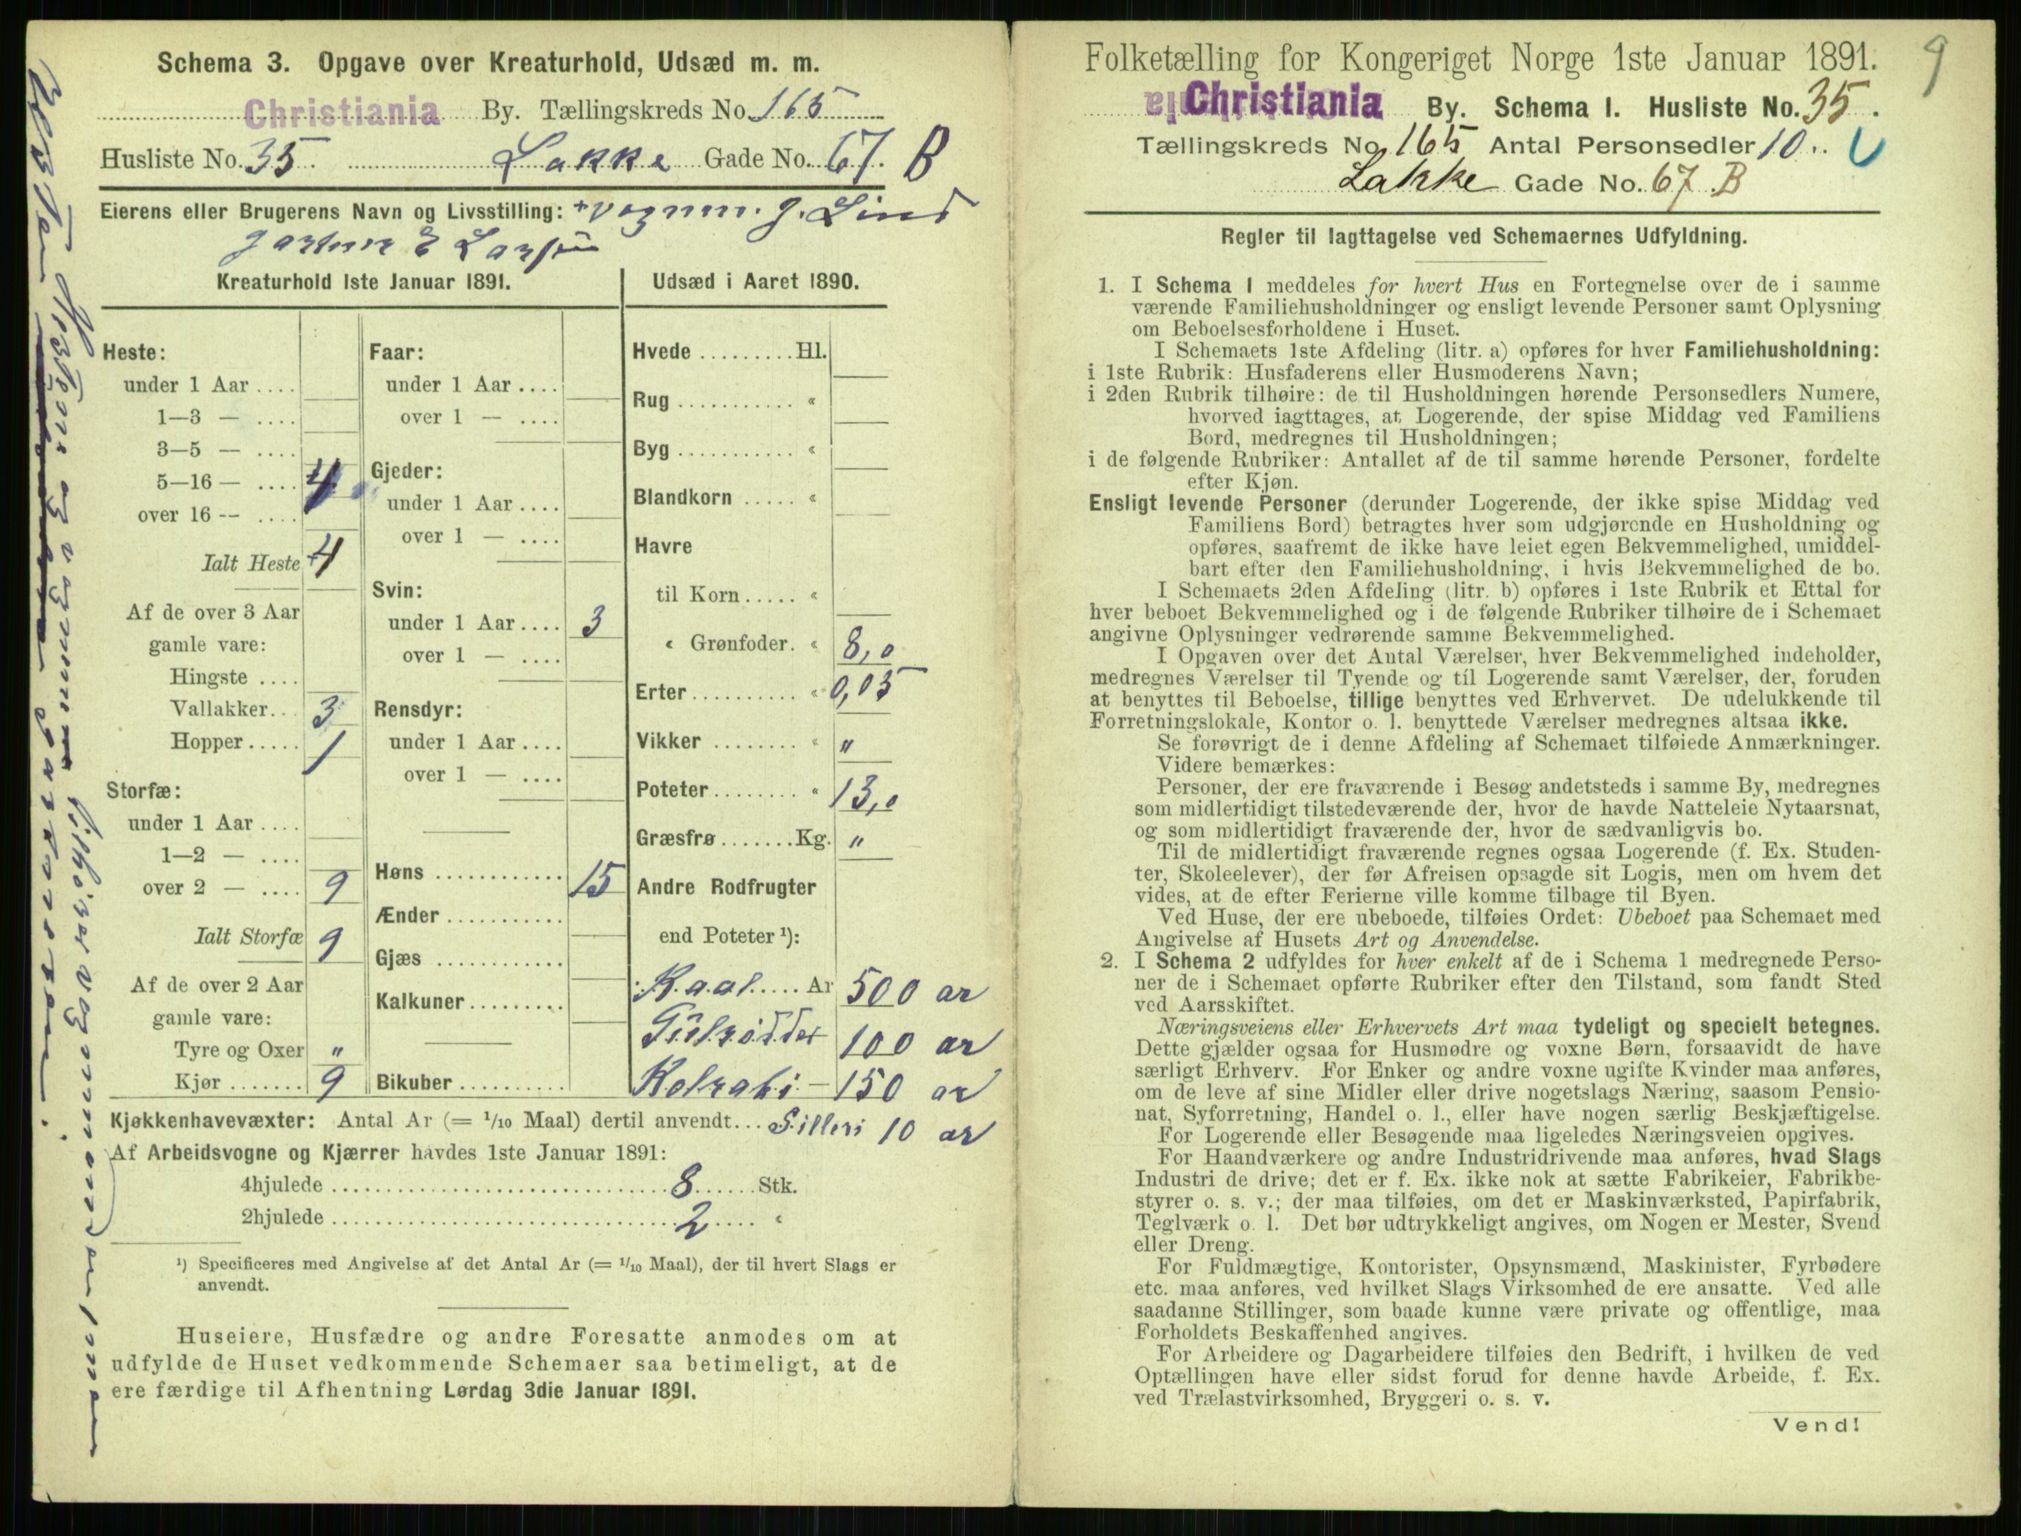 Schema 3. Opgave over Kreaturhold, Udsæd m. m.
Christiania By. Tællingskreds No. 165
Husliste No. 35. Lakke Gade No. 67 B
Eierens eller Brugerens Navn og Livsstilling: + Vognm. J. Lind
Gartner E Larsen
Kreaturhold 1ste Januar 1891.
Heste:
under 1 Aar ....
1—3 — ....
3—5 — ....
5—16 — .... 4
over 16 — ....
Ialt Heste 4
Af de over 3 Aar
gamle vare:
Hingste ....
Vallakker... 3
Hopper ..... 1
Storfæ:
under 1 Aar ....
1—2 — ....
over 2 — .... 9
Ialt Storfæ 9
Af de over 2 Aar
gamle vare:
Tyre og Oxer "
Kjør ....... 9
Faar:
under 1 Aar ....
over 1 — ....
Gjeder:
under 1 Aar ....
over 1 — ....
Svin:
under 1 Aar .... 3
over 1 — ....
Rensdyr:
under 1 Aar ....
over 1 — ....
Høns ............ 15
Ænder ...........
Gjæs ............
Kalkuner .........
Bikuber ..........
Udsæd i Aaret 1890.
Hvede ......... Hl.
Rug ........... «
Byg ........... «
Blandkorn ..... «
Havre
til Korn ..... «
« Grønfoder. « 8,0
Erter .......... « 0,05
Vikker ........ « "
Poteter ........ « 13,0
Græsfrø ....... Kg. "
Andre Rodfrugter
end Poteter ¹):
Kaal .... Ar 500 ar
Gulrødder 100 ar
Kolrabi — 150 ar
Kjøkkenhavevæxter: Antal Ar (= 1/10 Maal) dertil anvendt... Silleri 10 ar
Af Arbeidsvogne og Kjærrer havdes 1ste Januar 1891:
4hjulede ........ 8 ...... Stk.
2hjulede ........ 2 .... «
¹) Specificeres med Angivelse af det Antal Ar (= 1/10 Maal), der til hvert Slags er
anvendt.
Huseiere, Husfædre og andre Foresatte anmodes om at
udfylde de Huset vedkommende Schemaer saa betimeligt, at de
ere færdige til Afhentning Lørdag 3die Januar 1891.
Folketælling for Kongeriget Norge 1ste Januar 1891. 9
Christiania By. Schema 1. Husliste No. 35.
Tællingskreds No. 165 Antal Personsedler 10..
Lakke Gade No. 67 B
Regler til Iagttagelse ved Schemaernes Udfyldning.
1. I Schema 1 meddeles for hvert Hus en Fortegnelse over de i samme
værende Familiehusholdninger og ensligt levende Personer samt Oplysning
om Beboelsesforholdene i Huset.
I Schemaets 1ste Afdeling (litr. a) opføres for hver Familiehusholdning:
i 1ste Rubrik: Husfaderens eller Husmoderens Navn;
i 2den Rubrik tilhøire: de til Husholdningen hørende Personsedlers Numere,
hvorved iagttages, at Logerende, der spise Middag ved Familiens
Bord, medregnes til Husholdningen;
i de følgende Rubriker: Antallet af de til samme hørende Personer, fordelte
efter Kjøn.
Ensligt levende Personer (derunder Logerende, der ikke spise Middag ved
Familiens Bord) betragtes hver som udgjørende en Husholdning og
opføres, saafremt de ikke have leiet egen Bekvemmelighed, umiddel-
bart efter den Familiehusholdning, i hvis Bekvemmelighed de bo.
I Schemaets 2den Afdeling (litr. b) opføres i 1ste Rubrik et Ettal for
hver beboet Bekvemmelighed og i de følgende Rubriker tilhøire de i Schemaet
angivne Oplysninger vedrørende samme Bekvemmelighed.
I Opgaven over det Antal Værelser, hver Bekvemmelighed indeholder,
medregnes Værelser til Tyende og til Logerende samt Værelser, der, foruden
at benyttes til Beboelse, tillige benyttes ved Erhvervet. De udelukkende til
Forretningslokale, Kontor o. l. benyttede Værelser medregnes altsaa ikke.
Se forøvrigt de i denne Afdeling af Schemaet tilføiede Anmærkninger.
Videre bemærkes:
Personer, der ere fraværende i Besøg andetsteds i samme By, medregnes
som midlertidigt tilstedeværende der, hvor de havde Natteleie Nytaarsnat,
og som midlertidigt fraværende der, hvor de sædvanligvis bo.
Til de midlertidigt fraværende regnes ogsaa Logerende (f. Ex. Studen-
ter, Skoleelever), der før Afreisen opsagde sit Logis, men om hvem det
vides, at de efter Ferierne ville komme tilbage til Byen.
Ved Huse, der ere ubeboede, tilføies Ordet: Ubeboet paa Schemaet med
Angivelse af Husets Art og Anvendelse.
2. I Schema 2 udfyldes for hver enkelt af de i Schema 1 medregnede Perso-
ner de i Schemaet opførte Rubriker efter den Tilstand, som fandt Sted
ved Aarsskiftet.
Næringsveiens eller Erhvervets Art maa tydeligt og specielt betegnes.
Dette gjælder ogsaa for Husmødre og voxne Børn, forsaavidt de have
særligt Erhverv. For Enker og andre voxne ugifte Kvinder maa anføres,
om de leve af sine Midler eller drive nogetslags Næring, saasom Pensio-
nat, Syforretning, Handel o. l., eller have nogen særlig Beskjæftigelse.
For Logerende eller Besøgende maa ligeledes Næringsveien opgives.
For Haandværkere og andre Industridrivende maa anføres, hvad Slags
Industri de drive; det er f. Ex. ikke nok at sætte Fabrikeier, Fabrikbe-
styrer o. s. v.; der maa tilføies, om det er Maskinværksted, Papirfabrik,
Teglværk o. l. Det bør udtrykkeligt angives, om Nogen er Mester, Svend
eller Dreng.
For Fuldmægtige, Kontorister, Opsynsmænd, Maskinister, Fyrbødere
etc. maa anføres, ved hvilket Slags Virksomhed de ere ansatte. Ved alle
saadanne Stillinger, som baade kunne være private og offentlige, maa
Forholdets Beskaffenhed angives.
For Arbeidere og Dagarbeidere tilføies den Bedrift, i hvilken de ved
Optællingen have eller sidst forud for denne havde Arbeide, f. Ex.
ved Trælastvirksomhed, Bryggeri o. s. v.
Vend!